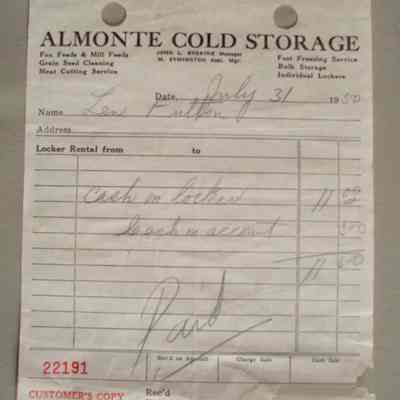 ALMONTE COLD STORAGE
Fox Feeds & Mill Feeds
Grain Seed Cleaning
Meat Cutting Service
JOHN L. ERSKINE Manager
M. SYMINGTON Asst. Mgr.
Fast Freezing Service
Bulk Storage
Individual Lockers
Date July 31 1950
Name Len Fulton
Address
Locker Rental from to
Cash on locker 11 00
Cash on account
11 00
Paid
22191
Rec'd on Account Charge Sale Cash Sale
CUSTOMER'S COPY Rec'd